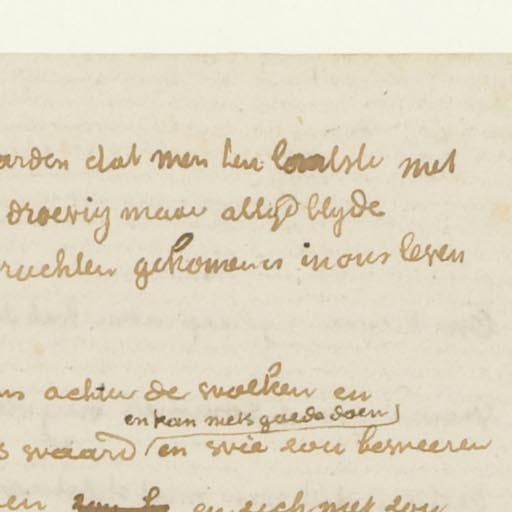 arden dat men ten laatste met
droevig maar altyd blyde
ruchten gekomen is in ons leven
ns achter de wolken en
en kan niets goeds doen
s waard en wie zou beweeren
en en zich met zou